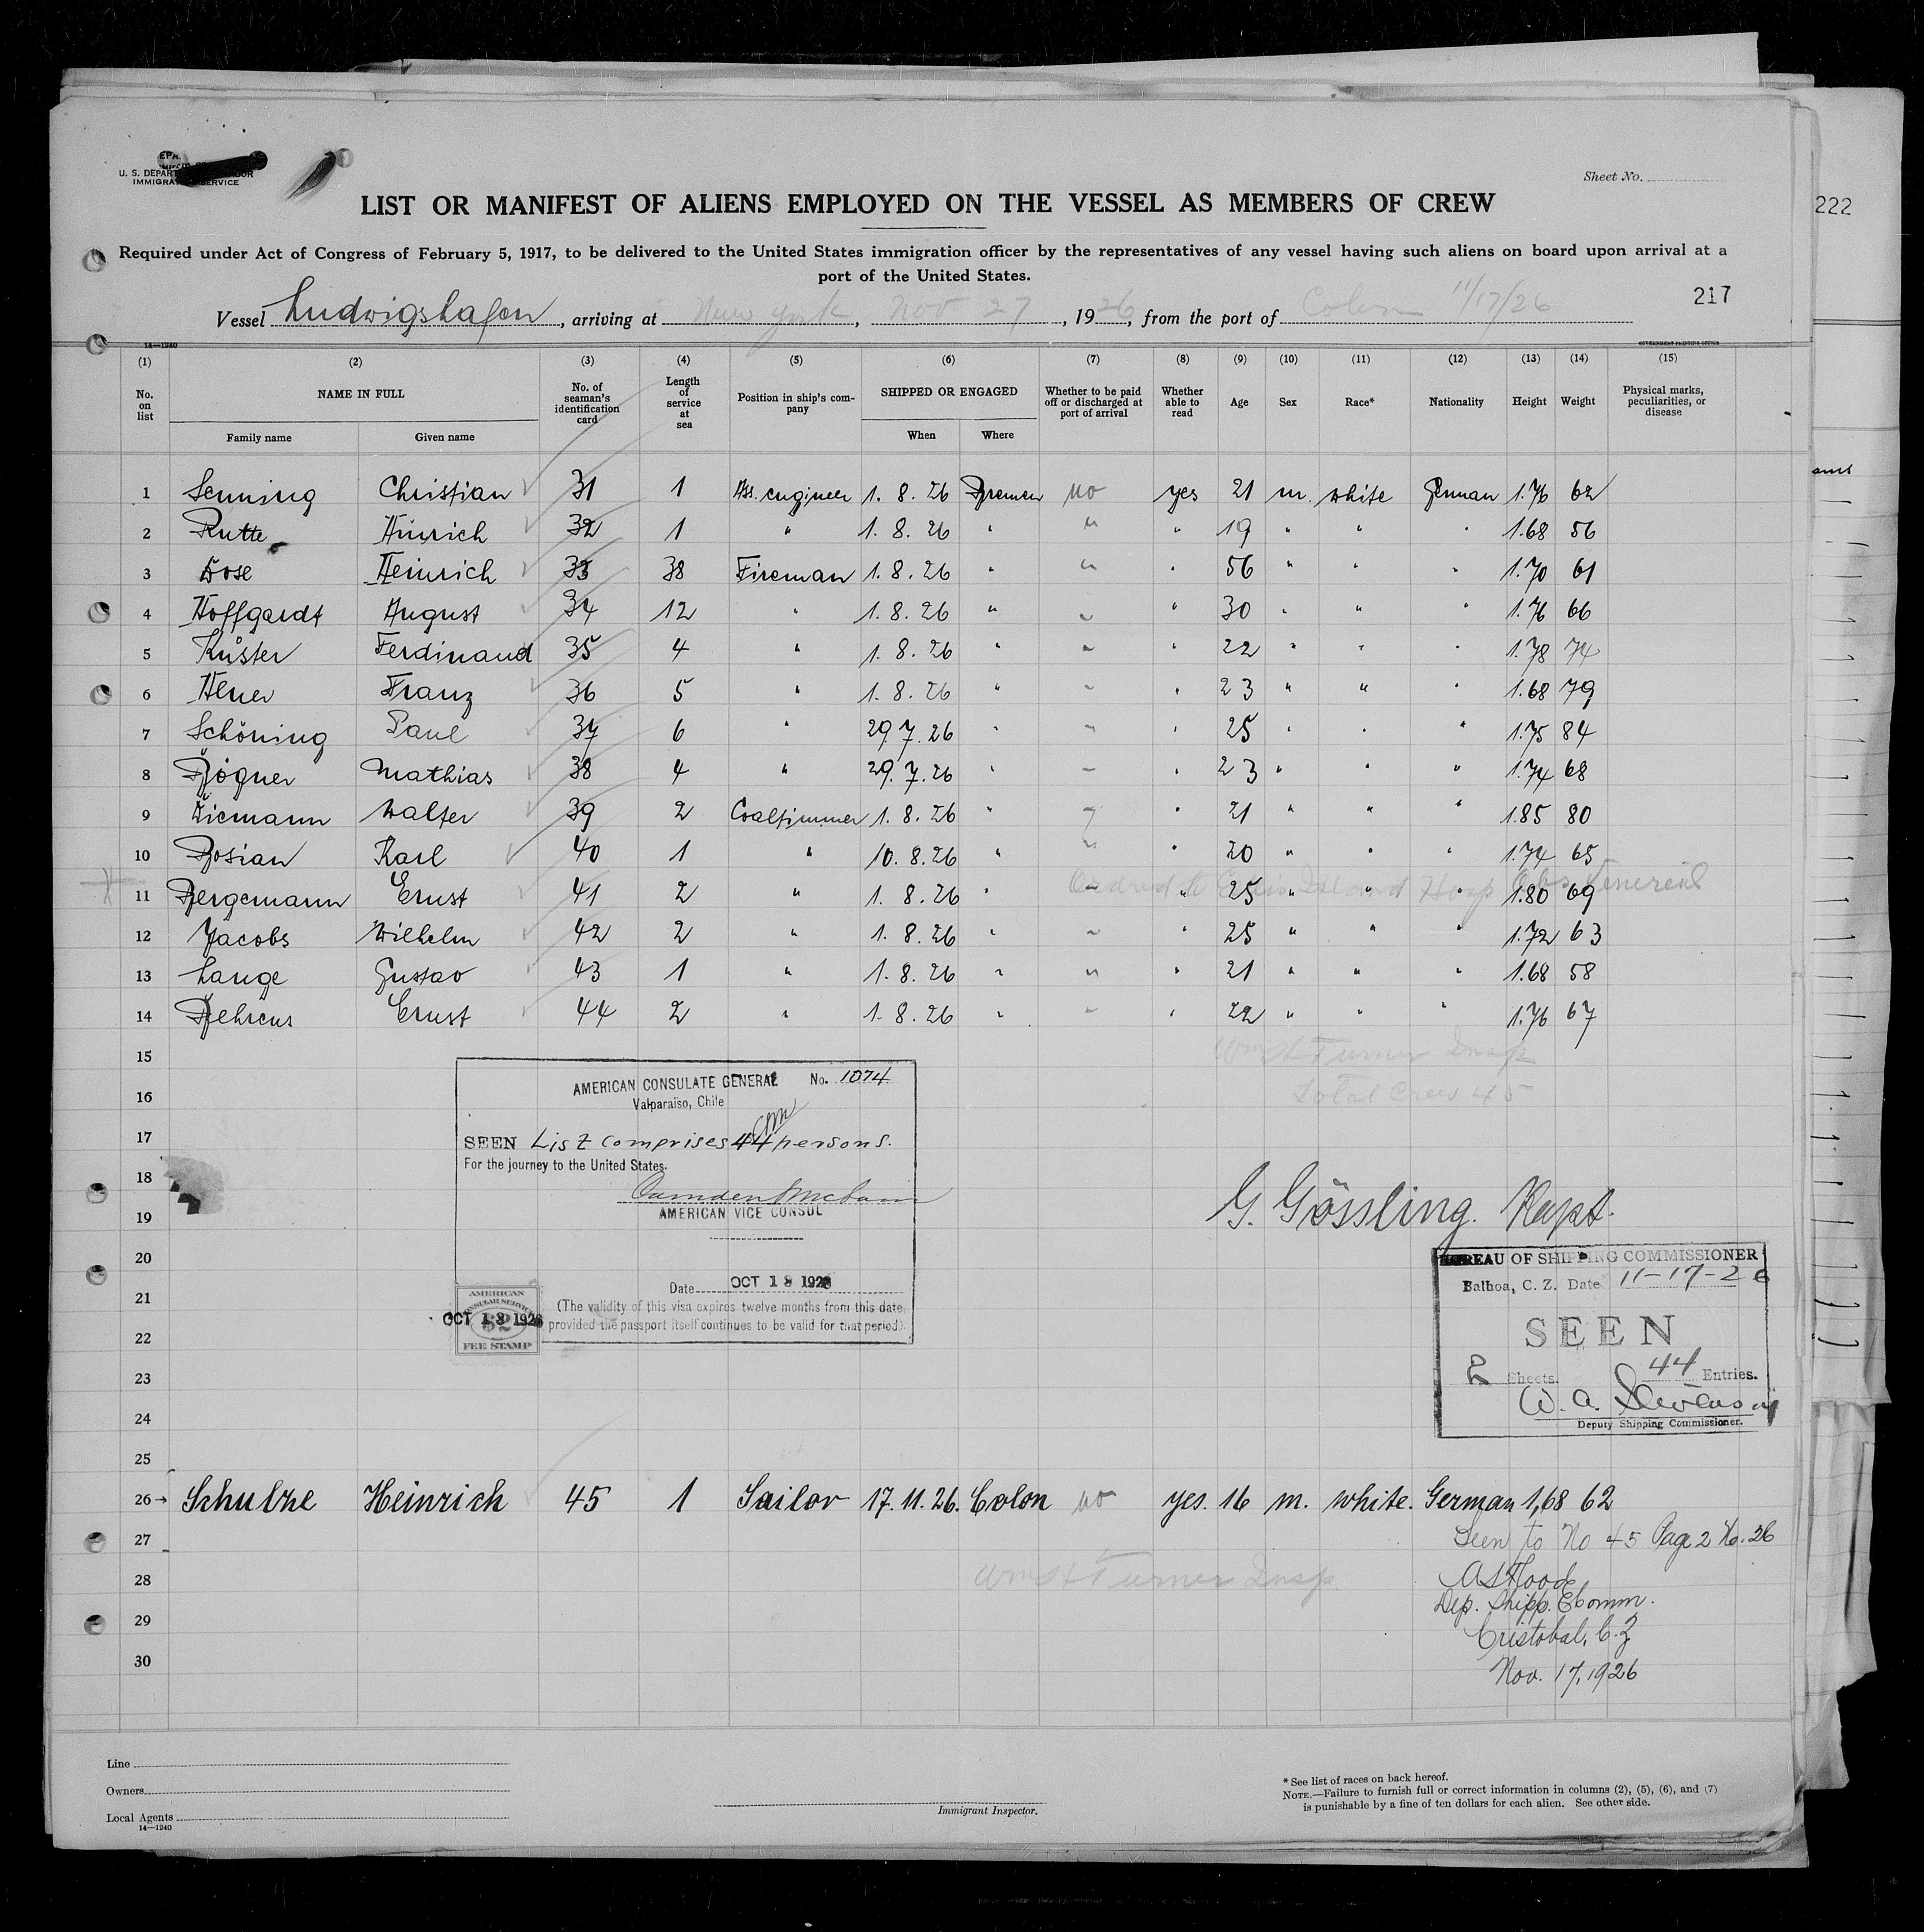 U. S. DEPARTMENT OF LABOR
IMMIGRATION SERVICE
Sheet No.
LIST OR MANIFEST OF ALIENS EMPLOYED ON THE VESSEL AS MEMBERS OF CREW
222
Required under Act of Congress of February 5, 1917, to be delivered to the United States immigration officer by the representatives of any vessel having such aliens on board upon arrival at a
port of the United States.
217
Vessel Ludwigshafen, arriving at New York, Nov 27, 1926, from the port of Colon 11/17/26
14—1240
GOVERNMENT PRINTING OFFICE
(1) (2) (3) (4) (5) (6) (7) (8) (9) (10) (11) (12) (13) (14) (15)
No. on list NAME IN FULL No. of seaman's identification card Length of service at sea Position in ship's company SHIPPED OR ENGAGED Whether to be paid off or discharged at port of arrival Whether able to read Age Sex Race* Nationality Height Weight Physical marks, peculiarities, or disease
Family name Given name When Where
1 Senning Christian 31 1 Ass. engineer 1. 8. 26 Bremen no yes 21 m. white German 1.76 62
2 Rutte Hinrich 32 1 " 1. 8. 26 " " " 19 " " " 1.68 56
3 Dose Heinrich 33 38 Fireman 1. 8. 26 " " " 56 " " " 1.70 61
4 Hoffgardt August 34 12 " 1. 8. 26 " " " 30 " " " 1.76 66
5 Küster Ferdinand 35 4 " 1. 8. 26 " " " 22 " " " 1.78 74
6 Heuer Franz 36 5 " 1. 8. 26 " " " 23 " " " 1.68 79
7 Schöning Paul 37 6 " 29. 7. 26 " " " 25 " " " 1.75 84
8 Bögner Mathias 38 4 " 29. 7. 26 " " " 23 " " " 1.74 68
9 Wiemann Walter 39 2 Coaltimmer 1. 8. 26 " " " 21 " " " 1.85 80
10 Bosian Karl 40 1 " 10. 8. 26 " " " 20 " " " 1.74 65
Ordred to Ellis Island Hosp Obs Venereal
11 Bergemann Ernst 41 2 " 1. 8. 26 " " " 25 " " " 1.80 69
12 Jacobs Wilhelm 42 2 " 1. 8. 26 " " " 25 " " " 1.72 63
13 Lange Gustav 43 1 " 1. 8. 26 " " " 21 " " " 1.68 58
14 Behrens Ernst 44 2 " 1. 8. 26 " " " 22 " " " 1.76 67
15 Wm H Turner Insp
16 Total Crew 45
17
18
19
20
21
22
23
24
25
AMERICAN CONSULATE GENERAL No. 1074
Valparaiso, Chile
SEEN List comprises 44 persons.
For the journey to the United States.
AMERICAN VICE CONSUL
Date OCT 18 1926
(The validity of this visa expires twelve months from this date,
provided the passport itself continues to be valid for that period).
AMERICAN
CONSULAR SERVICE
$2
OCT 18 1926
FEE STAMP
G. Gössling. Kapt.
BUREAU OF SHIPPING COMMISSIONER
Balboa, C. Z. Date 11-17-26
SEEN
2 Sheets. 44 Entries.
W. A. Stevenson
Deputy Shipping Commissioner.
26→ Schulze Heinrich 45 1 Sailor 17. 11. 26. Colon no yes. 16 m. white. German 1,68 62
27 Seen to No 45 Page 2 No. 26
28 Wm H Turner Insp.
Dep. Shipp. Comm.
29 Cristobal, C.Z
30 Nov. 17, 1926
Line
Owners
Local Agents
14—1240
Immigrant Inspector.
* See list of races on back hereof.
NOTE.—Failure to furnish full or correct information in columns (2), (5), (6), and (7)
is punishable by a fine of ten dollars for each alien. See other side.